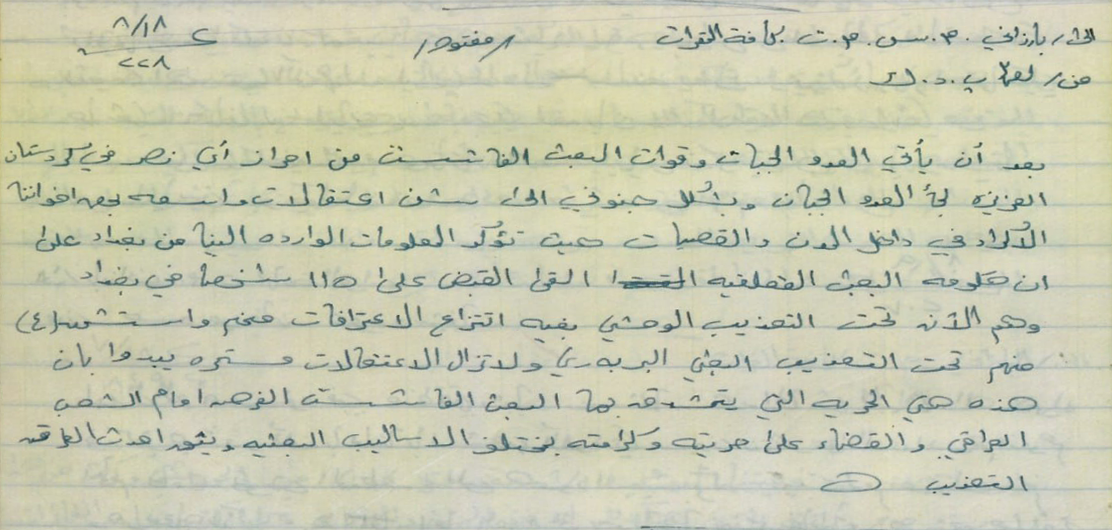 الى/ بارزاني . م.س. م.ت بكافة القوات /مفتوح/ ع ٨/١٨
٢٢٨
من/ لقاء ب . د . ك
بعد أن يأس العدو الجبان وقوات البعث الفاشست من احراز أي نصر في كردستان
العزيزه لجأ العدو الجبان وبشكل جنوني الى شن اعتقالات واسعه بحق اخواننا
الأكراد في داخل المدن والقصبات حيث تؤكد المعلومات الوارده الينا من بغداد على
ان حكومة البعث العفلقيه القى القبض على ١١٥ شخصا في بغداد
وهم الآن تحت التعذيب الوحشي بغيه انتزاع الاعترافات منهم واستشهد (٤)
منهم تحت التعذيب البعثي البربري ولا تزال الاعتقالات مستمره يبدوا بان
هذه هي الحريه التي يتمشدق بها البعث الفاشست امام الشعب
العراقي والقضاء على حريته وكرامته بمختلف الاساليب البعثيه احدث
التعذيب